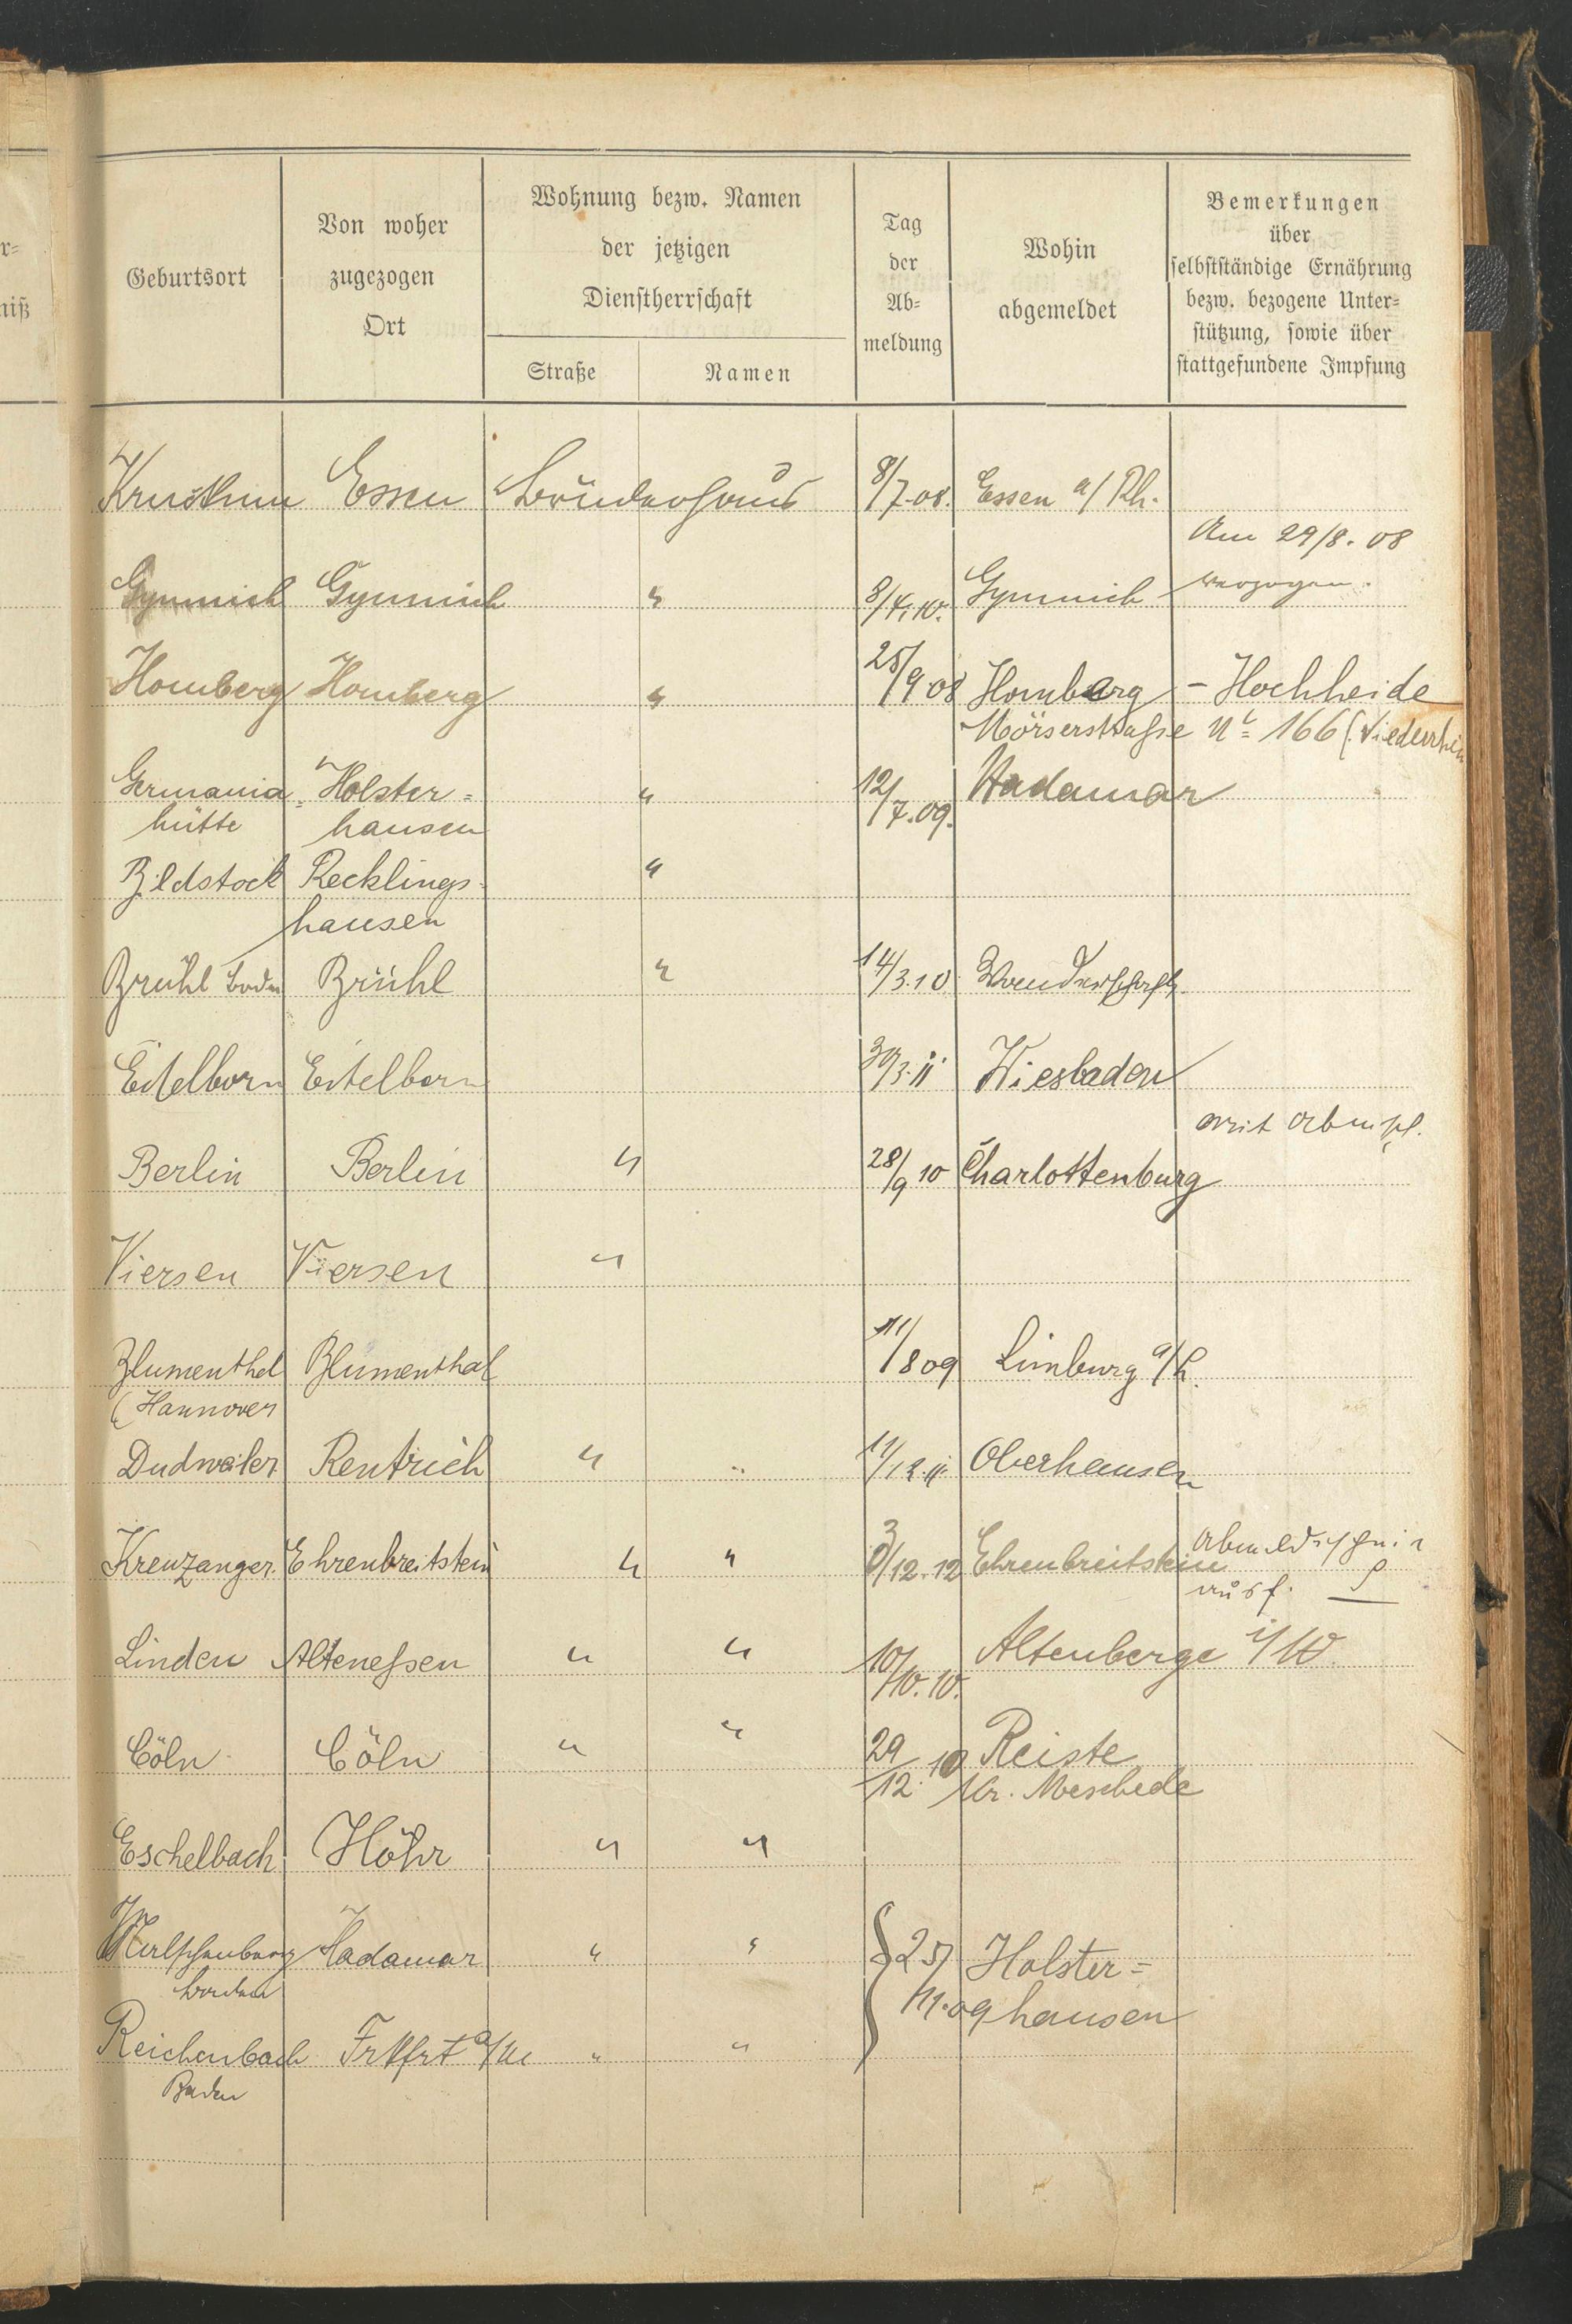 r=
niß
Geburtsort
Von woher
zugezogen
Ort
Wohnung bezw. Namen
der jetzigen
Dienstherrschaft
Straße Namen
Tag
der
Ab=
meldung
Wohin
abgemeldet
Bemerkungen
über
selbstständige Ernährung
bezw. bezogene Unter=
stützung, sowie über
stattgefundene Impfung
Essen Brüderhaus 8/7.08. Essen a/Rh.
Am 29/8.08
Gymnich Gymnich " 8/4.10. Gymnich verzogen.
Homberg Homberg " 25/9 08 Homberg - Hochheide
Mörserstraße No 166 (Niederrhein
Germania= Holster= " 12/7.09. Hadamar
hütte hausen
Bildstock Recklings= "
hausen
Brühl Brühl " 14/3.10 Wanderschaft.
Eitelborn Eitelborn 30/3.11 Wiesbaden
mit
Berlin Berlin " 28/9 10 Charlottenburg
Viersen Viersen "
Blumenthal Blumenthal 11/8 09 Limburg a/L.
(Hannover
Dudweiler Rentrisch " " 11/12.11. Oberhausen
Kreuzanger. Ehrenbreitstein " " /12.12 Ehrenbreitstein
Linden Altenessen " " 10/10.10. Altenberge i/W.
Cöln Cöln " " 29/12.10 Reiste
Kr. Meschede
Eschelbach Höhr " "
Hadamar " " 25/11.09 Holster=
hausen
Reichenbach Frkfrt a/M " "
Baden